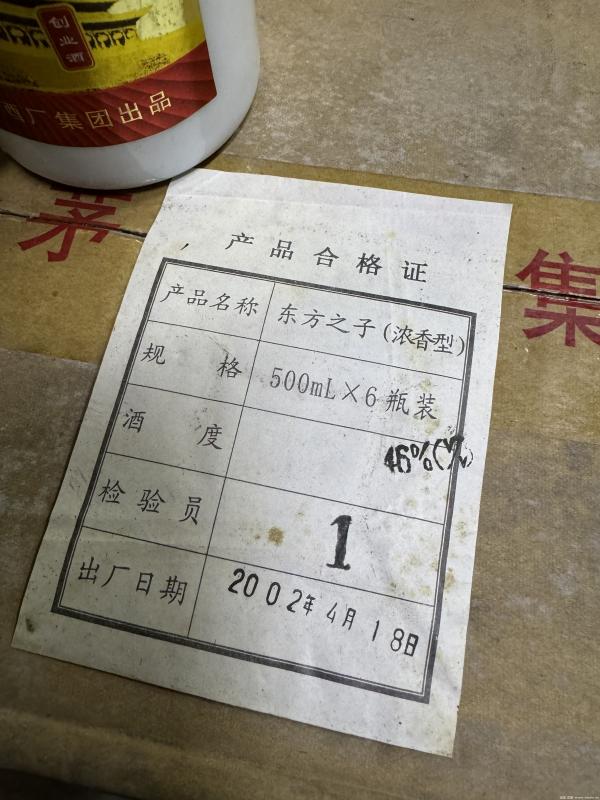 创业酒
酒厂集团出品
茅
集
产品合格证
产品名称 东方之子(浓香型)
规格 500mL×6瓶装
酒度 46%(
检验员 1
出厂日期 2002年4月18日